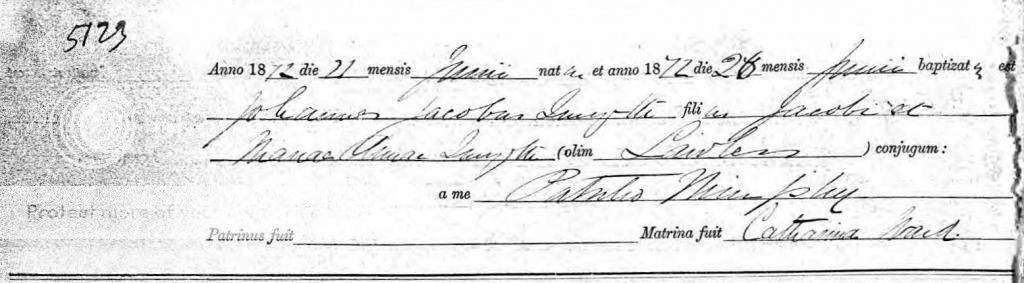 5123
Anno 1872 die 21 mensis Junii nat et anno 1872 die 28 mensis Junii baptizat est
Johannes Jacobus fili Jacobi et
Mariae Annae (olim Lawless ) conjugum:
a me Patritio Murphy
Patrinus fuit Matrina fuit Catharina Ward.